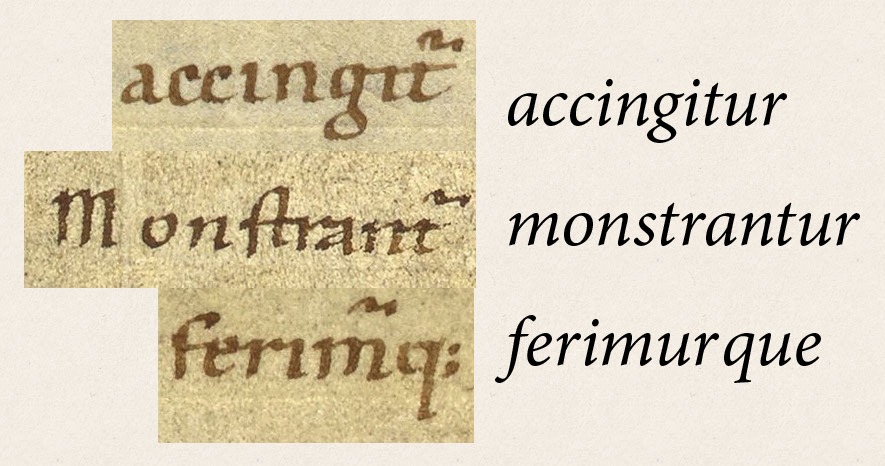 accingit᷑ accingitur
M onſtrant᷑ monstrantur
ferim᷑q: ferimurque